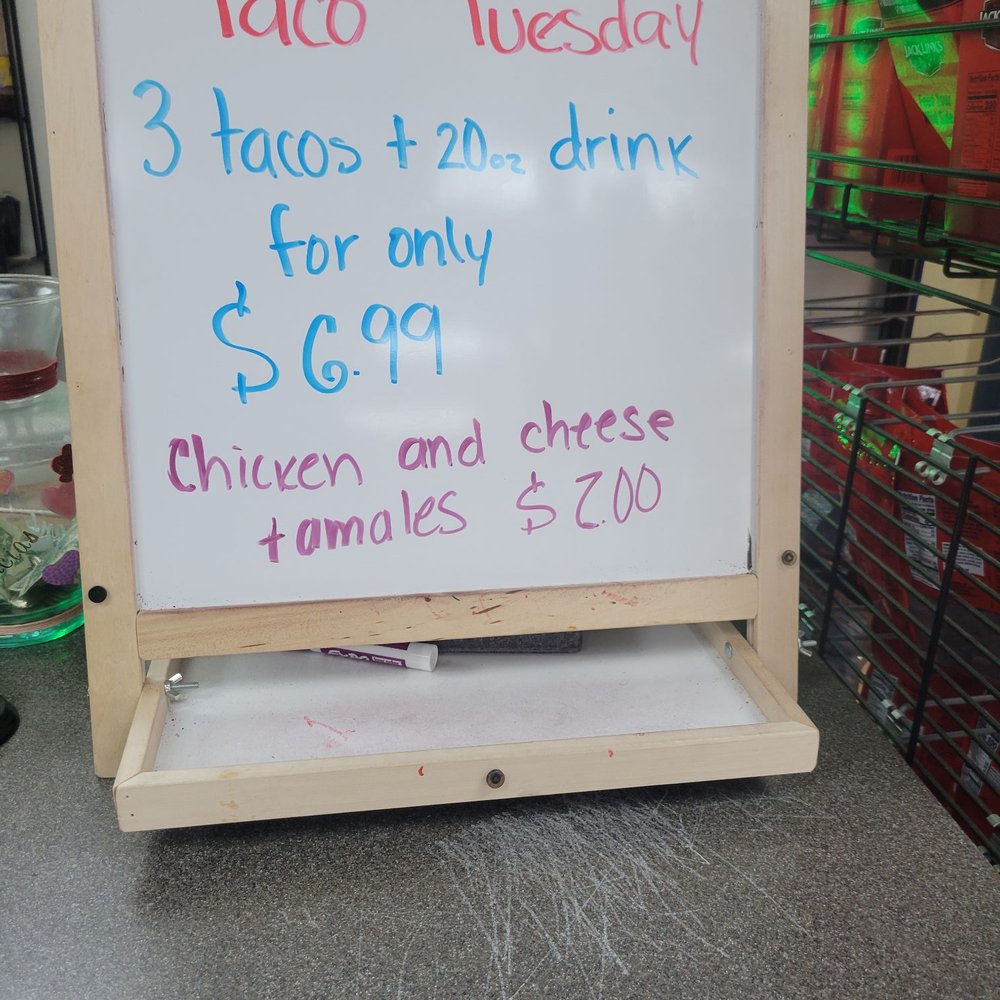 Taco Tuesday
3 tacos + 20oz drink
for only
$6.99
Chicken and cheese
tamales $2.00
JACK LINK'S
Nutrition Facts